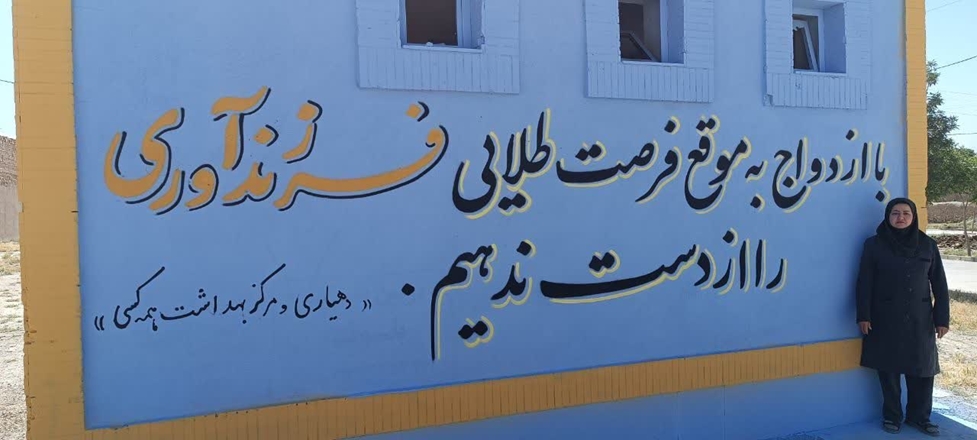 با ازدواج به موقع فرصت طلایی فرزندآوری
را از دست ندهیم.
«دهیاری و مرکز بهداشت همه کسی»